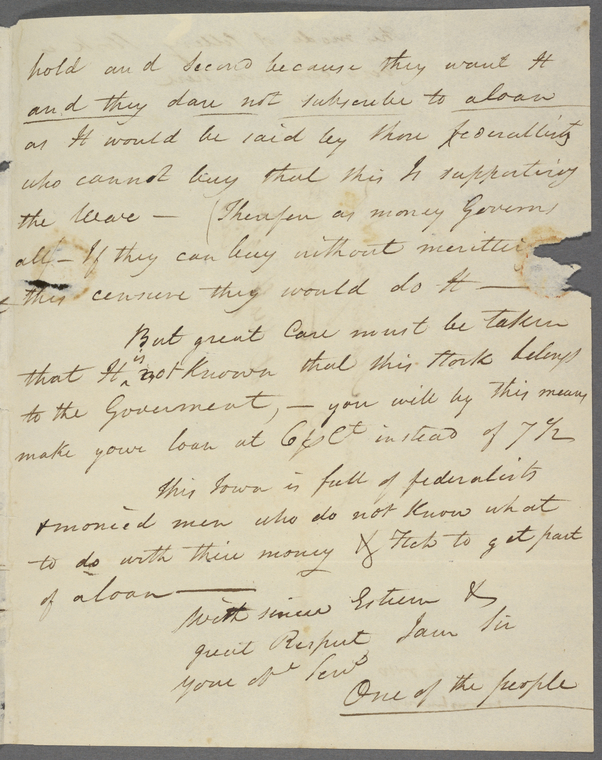 hold and Second because they want It
and they dare not subscribe to a loan
as It would be said by those federallists
who cannot buy that this Is supporting
the Ware — (Therefor as money Governs
all — If they can buy without meritting
this censure they would do It —
But great Care must be taken
that It is not Known that this Stock belongs
to the Goverment, — you will by this means
make youre loan at 6 p Ct instead of 7 1/2
This Town is full of federalists
& monied men who do not Know what
to do with thire money & Itch to get part
of a loan —
With sincere Esteem &
great Respect I am Sir
youre Ob Servt
One of the people